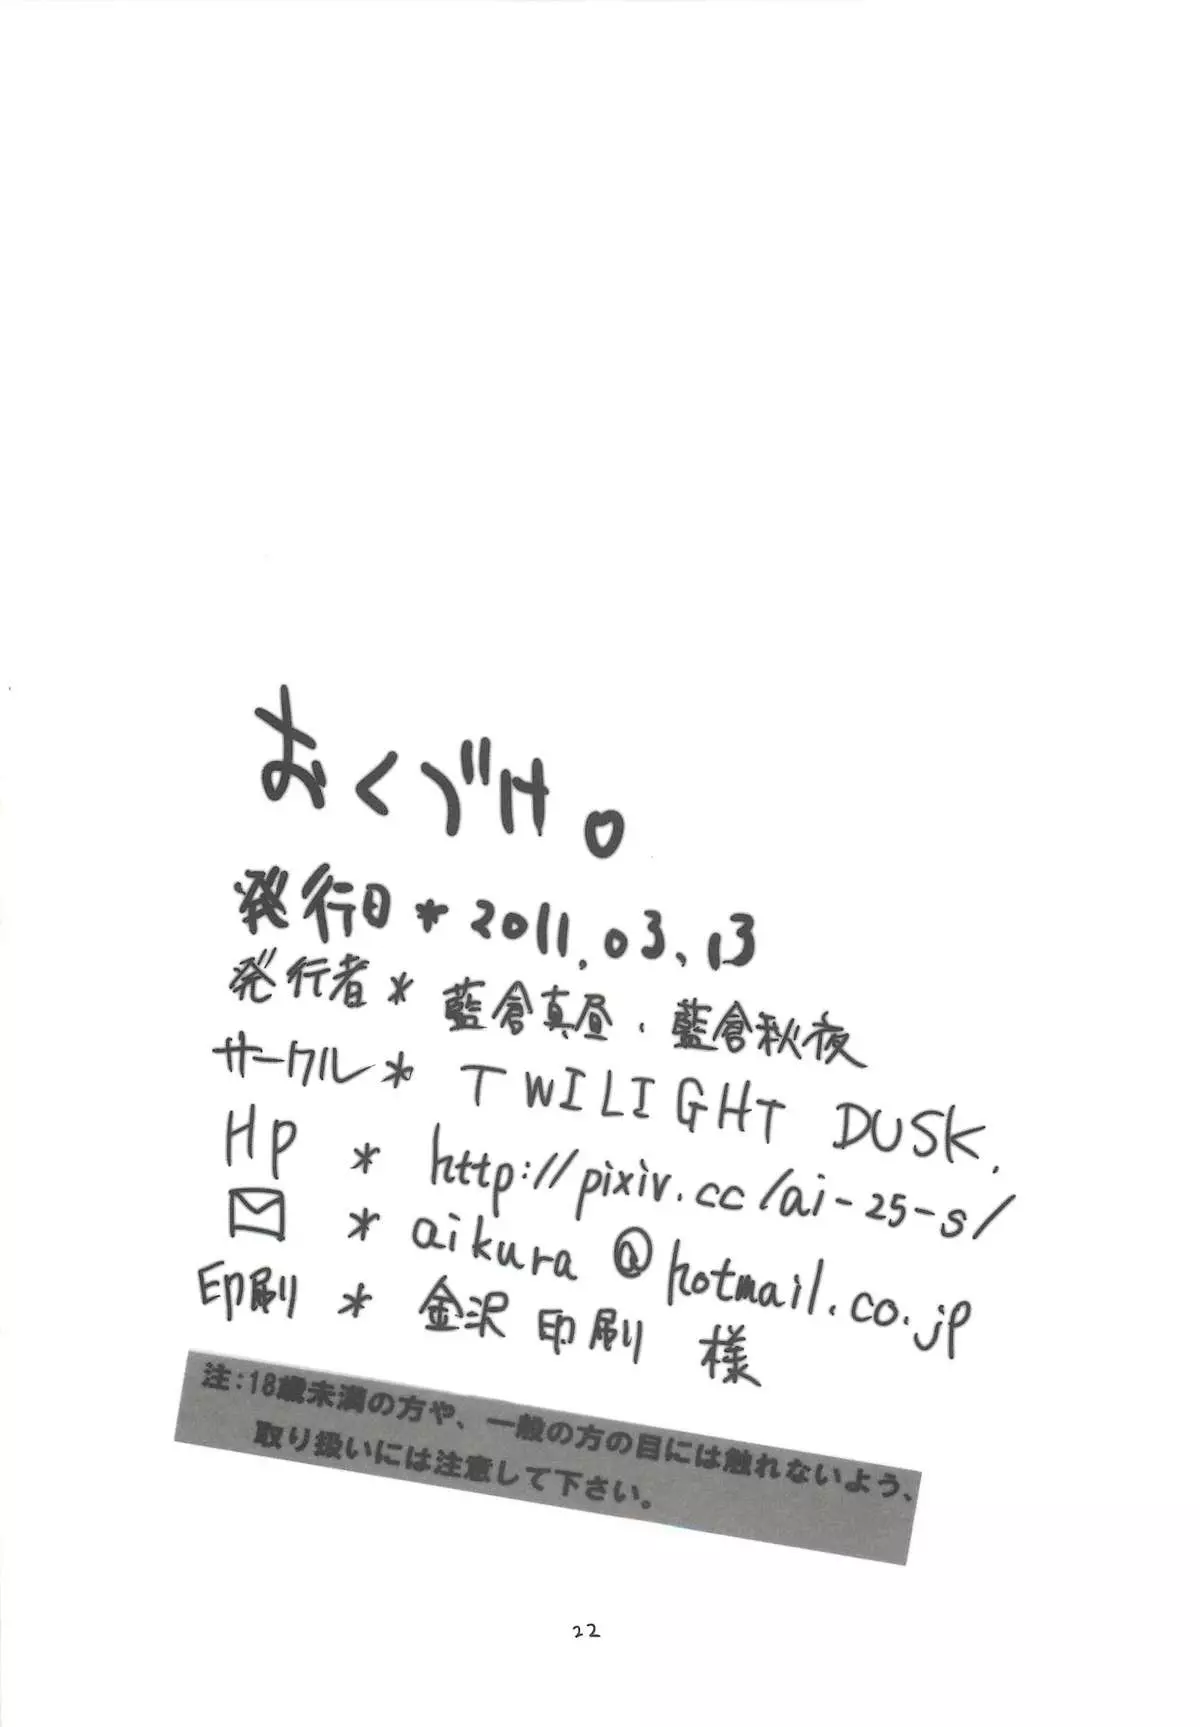 おくづけ。
発行日 * 2011.03.13
発行者 * 藍倉真昼、藍倉秋夜
サークル * TWILIGHT DUSK.
HP * http://pixiv.cc/ai-25-s/
✉ * aikura@hotmail.co.jp
印刷 * 金沢印刷 様
注:18歳未満の方や、一般の方の目には触れないよう、
取り扱いには注意して下さい。
22